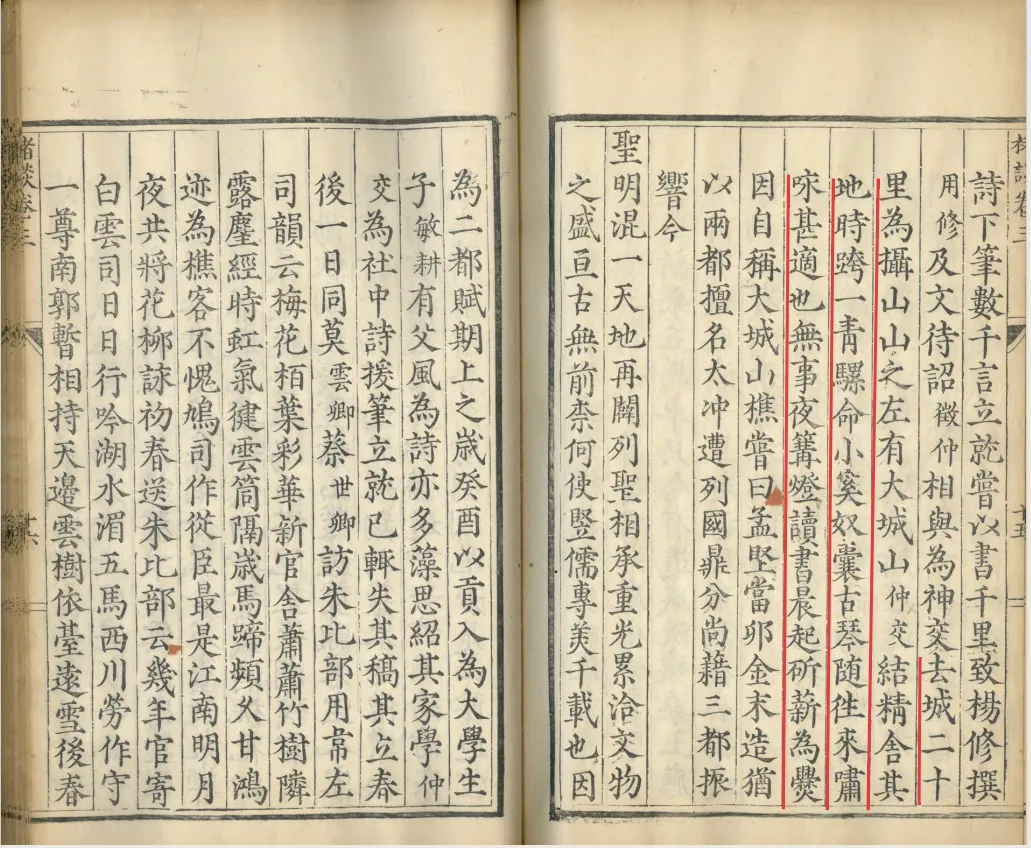 卷三
十五
詩下筆數千言立就嘗以書千里致楊修撰
用修及文待詔徵仲相與為神交去城二十
里為攝山山之左有大城山仲交結精舍其
地時跨一青騾命小奚奴囊古琴随徃來嘯
咏甚適也無事夜篝燈讀書晨起斫薪為爨
因自稱大城山樵嘗曰孟堅當卯金末造猶
以兩都擅名太冲遭列國鼎分尚藉三都振
響今
聖明混一天地再闢列聖相承重光累洽文物
之盛亘古無前柰何使竪儒專羙千載也因
為二都賦期上之嵗癸酉以貢入為大學生
子敏耕有父風為詩亦多藻思紹其家學仲
交為社中詩援筆立就已輒失其稿其立春
後一日同莫雲卿蔡世卿訪朱比部用常左
司韻云梅花栢葉彩華新官舍蕭蕭竹樹隣
露麈經時虹氣健雲筒隔嵗馬蹄頻乆甘鴻
迹為樵客不愧鳩司作從臣最是江南明月
夜共將花柳詠初春送朱比部云幾年官寄
白雲司日日行吟湖水湄五馬西川勞作守
一尊南郭暫相持天邊雲樹依臺遠雪後春
渚談卷三
十六